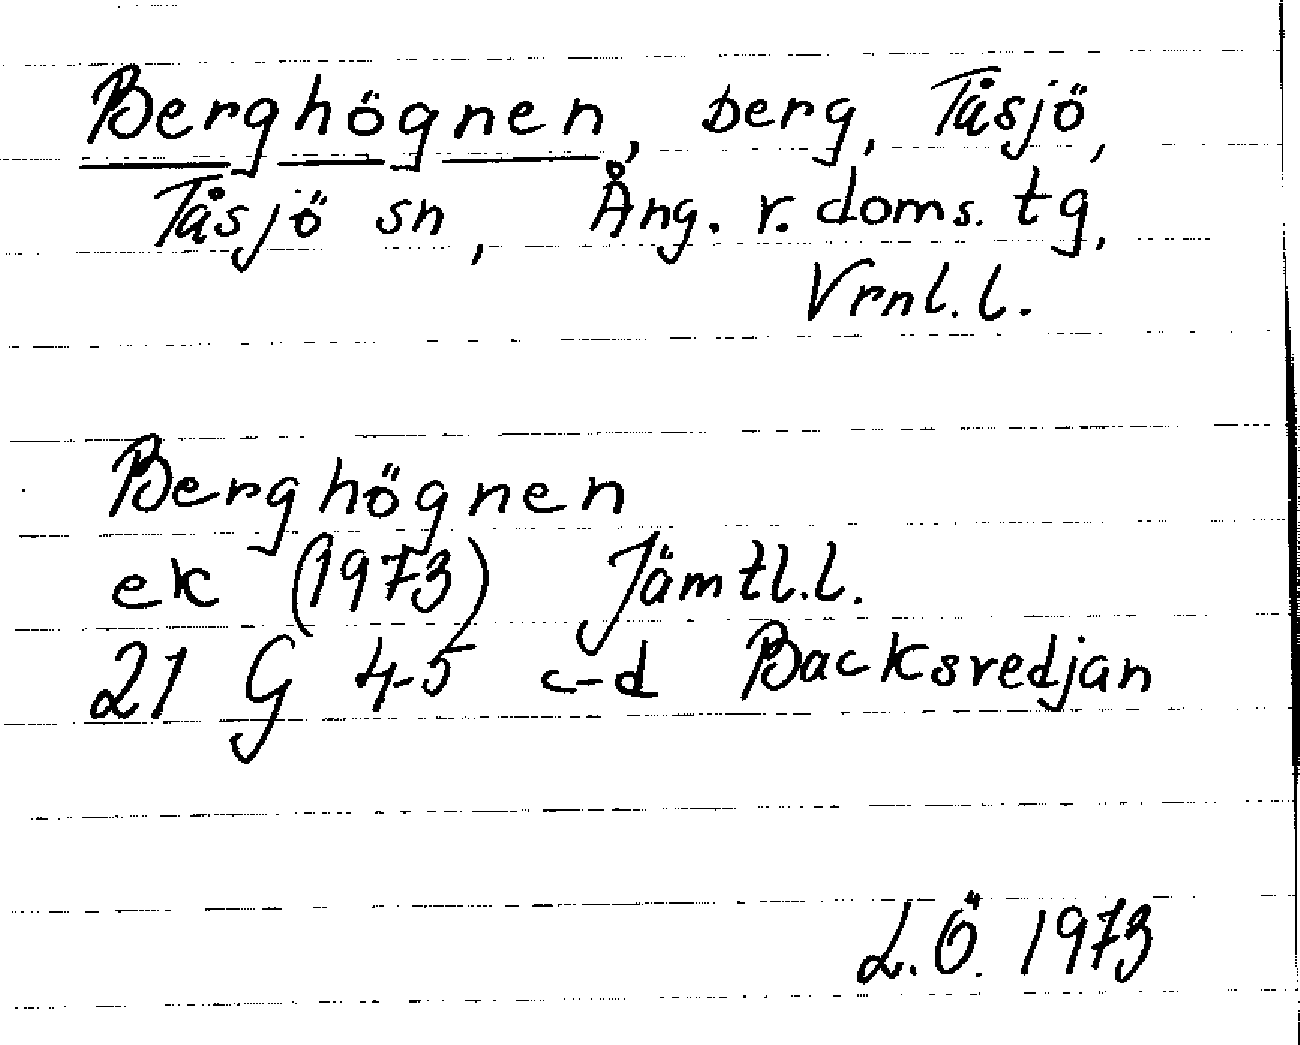 Berghögnen, berg, Tåsjö,
Tåsjö sn, Ång. r. doms. tg,
Vrnl. l.
Berghögnen
ek (1973) Jämtl.l.
21 G 4-5 c-d Backsredjan
L.Ö. 1973